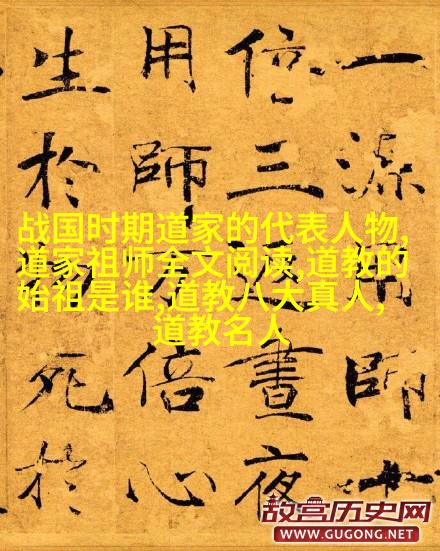 一源用師十
倍三返晝夜
用師万倍心
生於物死於
战国时期道家的代表人物,
道家祖师全文阅读,道教的
始祖是谁,道教八大真人,
道教名人
故宫历史网
WWW.GUGONG.NET